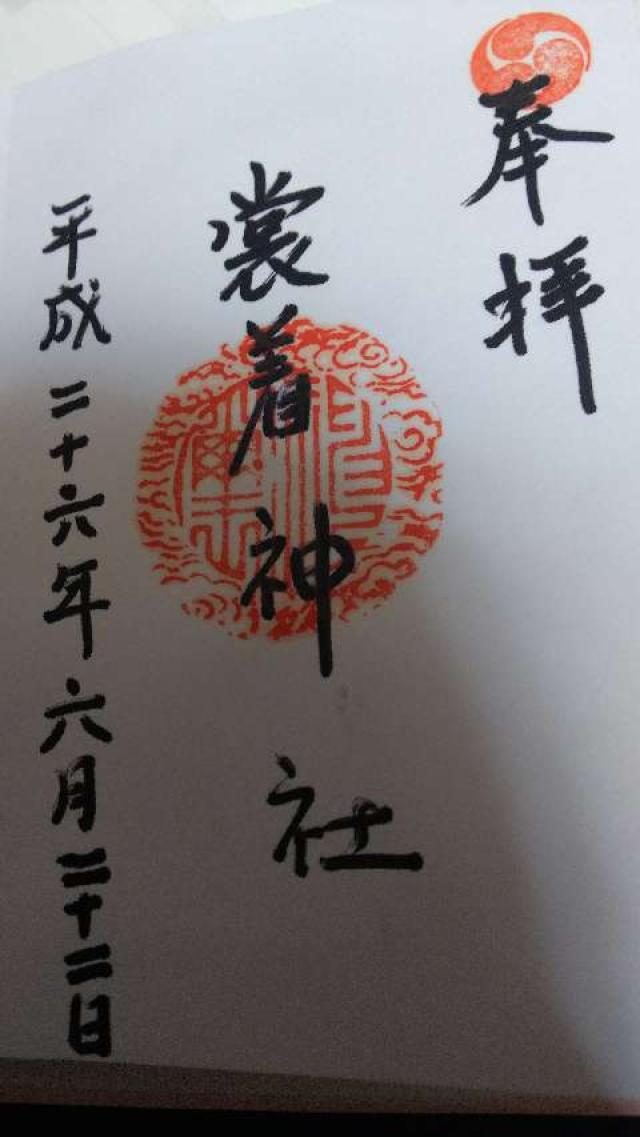 奉拝
裳着神社
平成二十六年六月二十二日